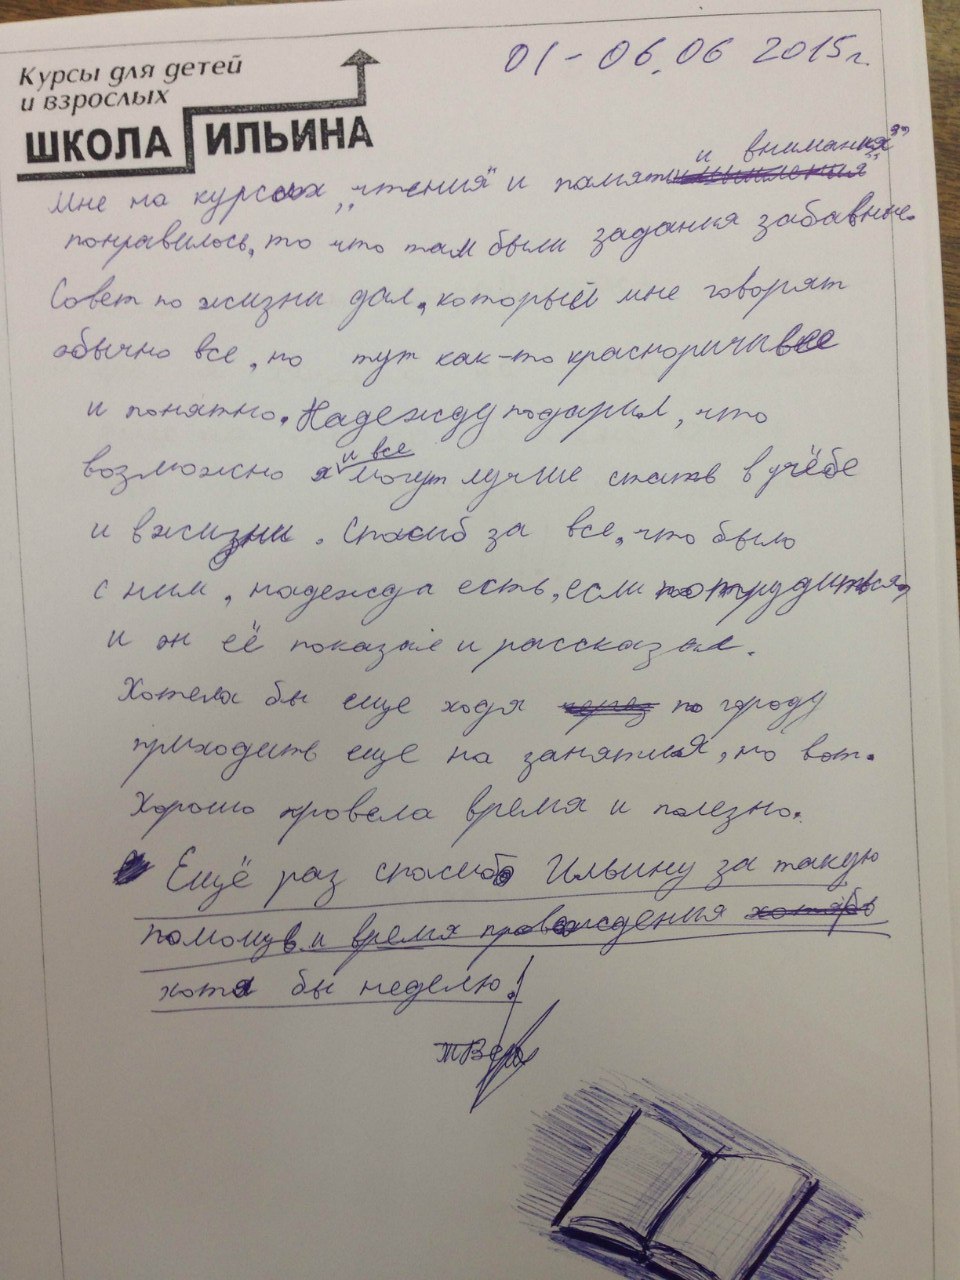 Курсы для детей
и взрослых
ШКОЛА ИЛЬИНА
01-06.06 2015г.
и внимания"
Мне на курсах „чтения" и памяти
понравилось, то что там были задания забавные.
Совет по жизни дал, который мне говорят
обычно все, но тут как-то красноричивее
и понятно. Надежду подарил, что
и все
возможно я могут лучше стать в учёбе
и в жизни. Спосиб за все, что было
с ним, надежда есть, если потрудиться,
и он её показал и рассказал.
Хотела бы еще ходя по городу
приходить еще на занятия, но вот.
Хорошо провела время и полезно.
Ещё раз спосибо Ильину за такую
помощь и время провождения
хотя бы неделю!